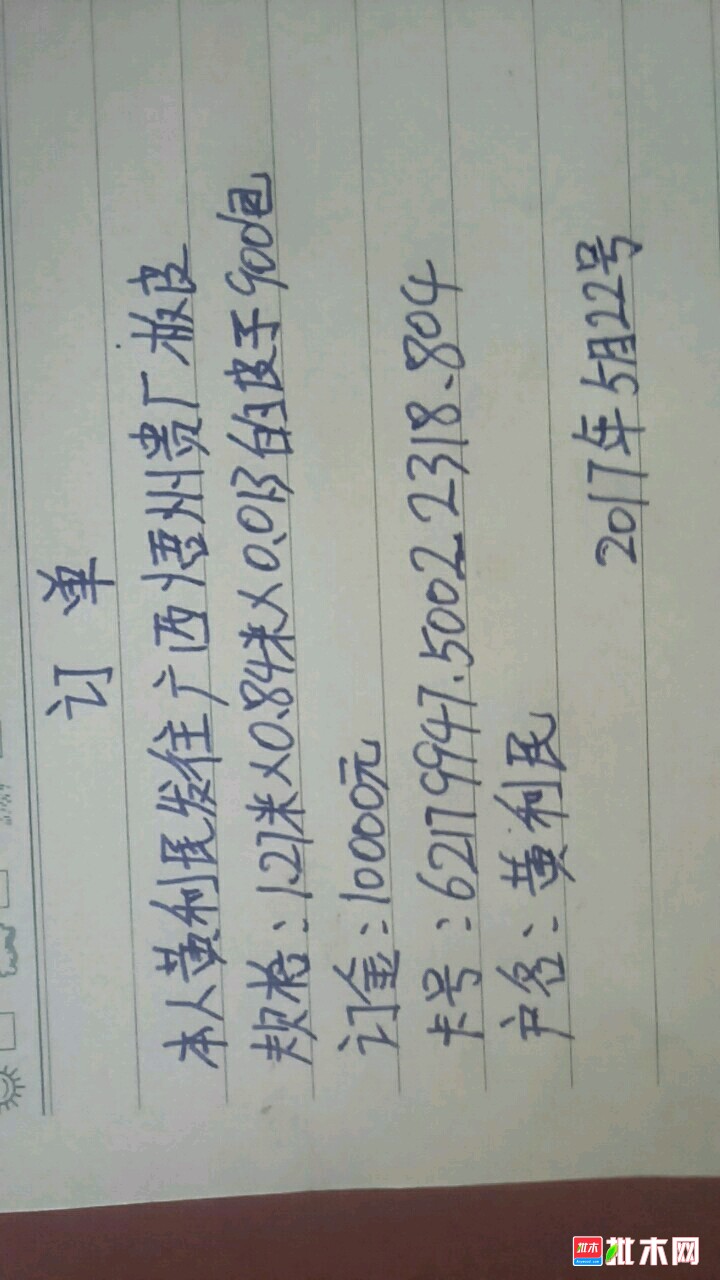 订单
本人黄利民发往广西梧州贵厂板皮
规格：1.27米X0.84米X0.013的皮子900包
订金：10000元
卡号：62179947.5002.2318.804
户名：黄利民
2017年5月22号
批木
批木网